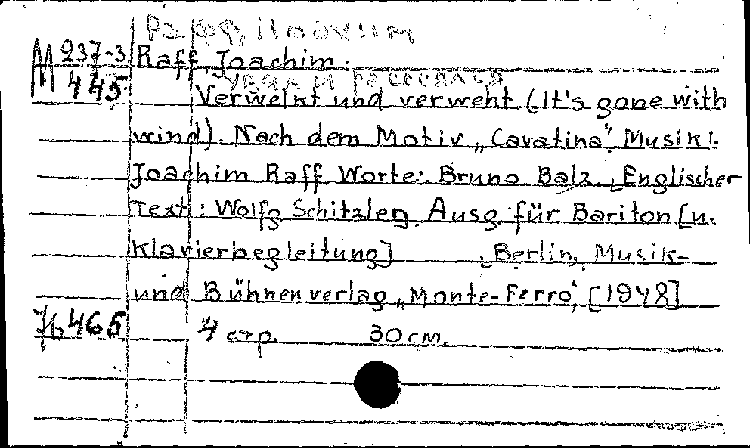 Рафф, Иоахим
М 237-3 Raff, Joachim.
445 увял и рассеялся
Verwelkt und verweht (It's gone with
wind). Nach dem Motiv „Cavatina" Musik:
Joachim Raff Worte: Bruno Balz. Englischer
Text: Wolfg Schitzleg Ausg. für Bariton [u.
Klavierbegleitung] , Berlin, Musik-
und Bühnenverlag „Monte-Ferro", [1948]
76465 4 стр. 30 см.